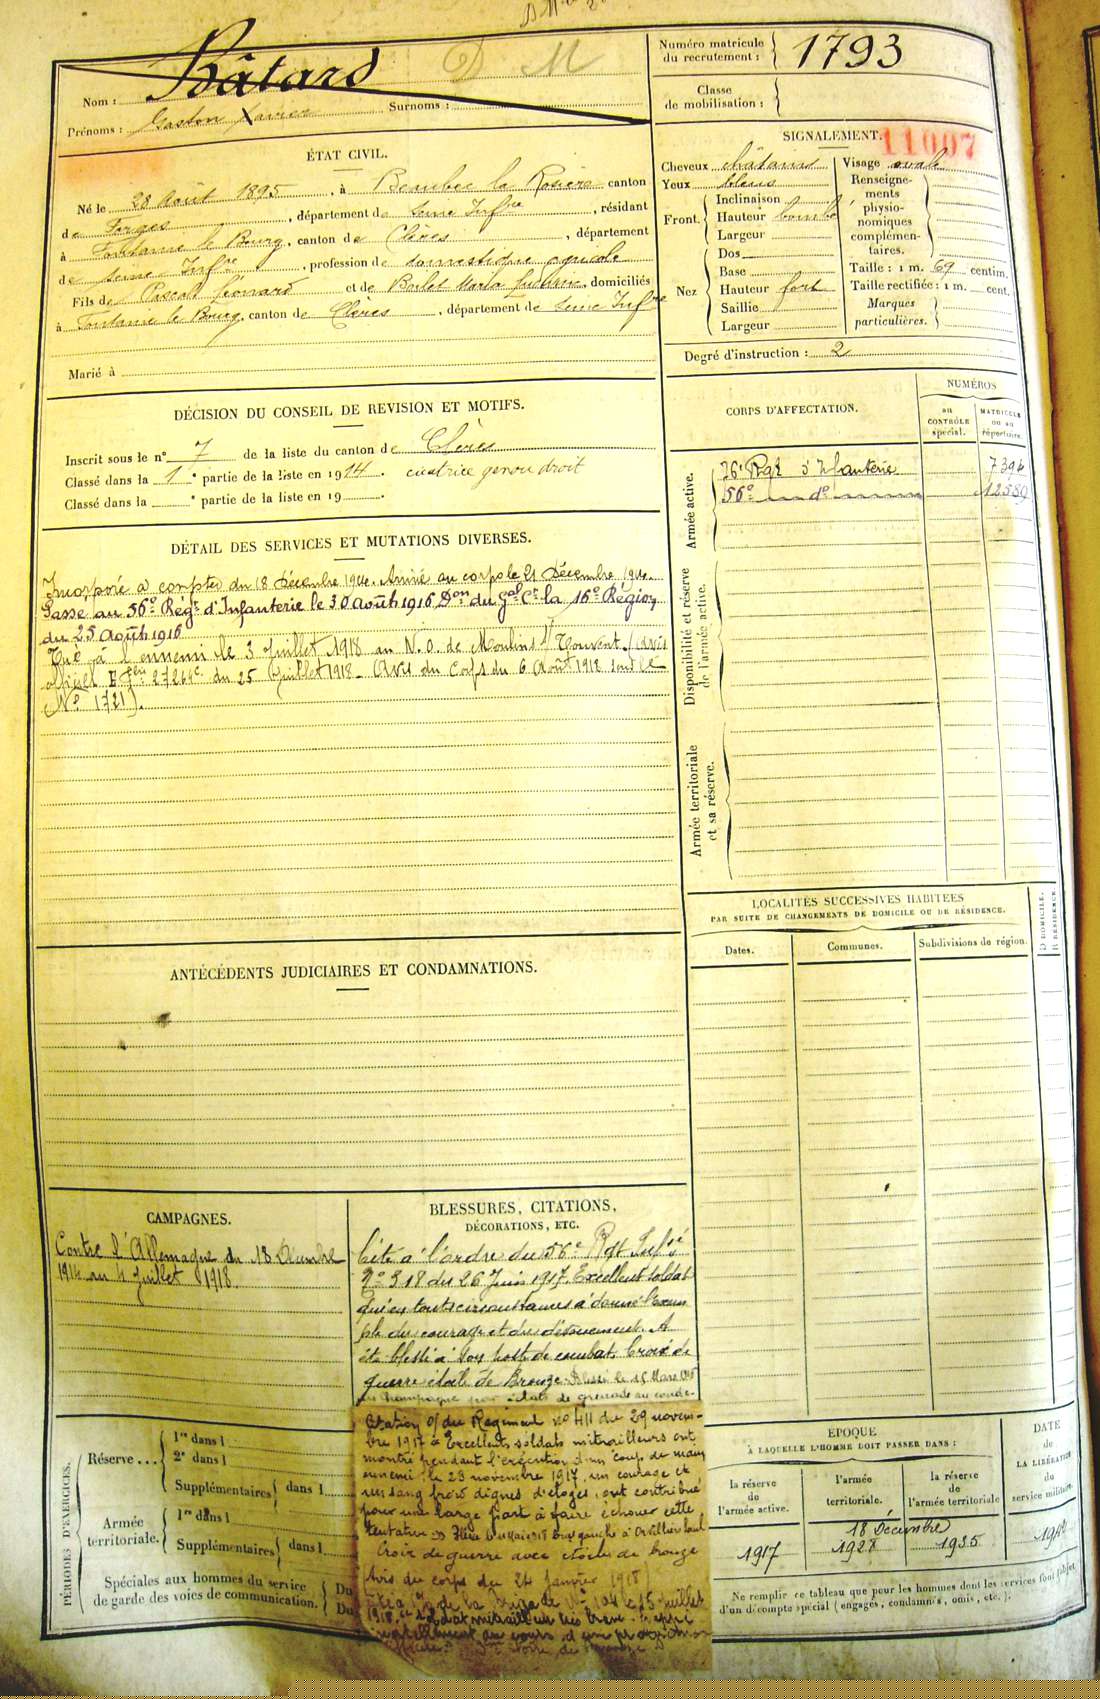 Numéro matricule du recrutement : 1793
Classe de mobilisation :
Nom : Bâtard D M
Prénoms : Gaston Xavier Surnoms :
ÉTAT CIVIL.
Né le 28 Août 1895, à Bembec la Rosière canton
de Forges, département de Seine Infre, résidant
à Fontaine le Bourg, canton de Clères, département
de Seine Infre, profession de domestique agricole
Fils de Pascal Léonard et de Maria domiciliés
à Fontaine le Bourg, canton de Clères, département de Seine Infre
Marié à
SIGNALEMENT.
11007
Cheveux châtains
Yeux bleus
Front. Inclinaison
Hauteur bombé
Largeur
Nez Dos
Base
Hauteur fort
Saillie
Largeur
Visage ovale
Renseigne-
ments
physio-
nomiques
complémen-
taires.
Taille : 1 m. 69 centim.
Taille rectifiée : 1 m. cent.
Marques
particulières.
Degré d'instruction : 2
DÉCISION DU CONSEIL DE REVISION ET MOTIFS.
Inscrit sous le n° 7 de la liste du canton de Clères
Classé dans la 1e partie de la liste en 1914. cicatrice genou droit
Classé dans la e partie de la liste en 19 .
CORPS D'AFFECTATION.
NUMÉROS
au CONTRÔLE spécial.
MATRICULE ou au répertoire.
Armée active.
76e Rgt d'Infanterie 7394
56e do 12589
Disponibilité et réserve de l'armée active.
Armée territoriale et sa réserve.
DÉTAIL DES SERVICES ET MUTATIONS DIVERSES.
Incorporé à compter du 18 Décembre 1914. Arrivé au corps le 21 Décembre 1914.
Passé au 56e Régt d'Infanterie le 30 Août 1916 Don du Gal Ct la 16e Région
du 25 Août 1916
Tué à l'ennemi le 3 Juillet 1918 au N.O. de Moulins s/ Touvent. (Avis
officiel du 25 Juillet 1918 - Avis du Corps du 6 Août 1918 sous le
No 1721).
LOCALITÉS SUCCESSIVES HABITÉES
PAR SUITE DE CHANGEMENTS DE DOMICILE OU DE RÉSIDENCE.
Dates.
Communes.
Subdivisions de région.
DOMICILE.
RÉSIDENCE
ANTÉCÉDENTS JUDICIAIRES ET CONDAMNATIONS.
CAMPAGNES.
Contre l'Allemagne du 18 Décembre
1914 au 4 Juillet 1918.
BLESSURES, CITATIONS,
DÉCORATIONS, ETC.
Cité à l'ordre du 56e Rgt Infie
No 318 du 26 Juin 1917. Excellent soldat
qui en toutes circonstances a donné l'exem
ple du courage et du dévouement. A
été blessé à son poste de combat. Croix de
guerre étoile de Bronze. Blessé le 15 Mars
en Champagne par éclats de grenade au coude.
Citation o/ du Régiment No 411 du 29 novem-
bre 1917 Excellents soldats mitrailleurs ont
montré pendant l'exécution d'un coup de main
ennemi le 23 novembre 1917, un courage et
un sang froid dignes d'éloges, ont contribué
pour une large part à faire échouer cette
tentative
Croix de guerre avec étoile de bronze
Avis du corps du 24 Janvier 1918
de la Brigade le 15 juillet
1918. soldat mitrailleur très brave
mortellement au cours d'une
PÉRIODES D'EXERCICES.
Réserve ... 1re dans l
2e dans l
Supplémentaires dans l
Armée territoriale. 1re dans l
Supplémentaires dans l
Spéciales aux hommes du service
de garde des voies de communication. Du
Du
EPOQUE
À LAQUELLE L'HOMME DOIT PASSER DANS :
la réserve de l'armée active.
l'armée territoriale.
la réserve de l'armée territoriale
DATE de LA LIBÉRATION du service militaire.
18 Décembre
1917 1928 1935
Ne remplir ce tableau que pour les hommes dont les services font l'objet
d'un décompte spécial (engagés, condamnés, omis, etc.).